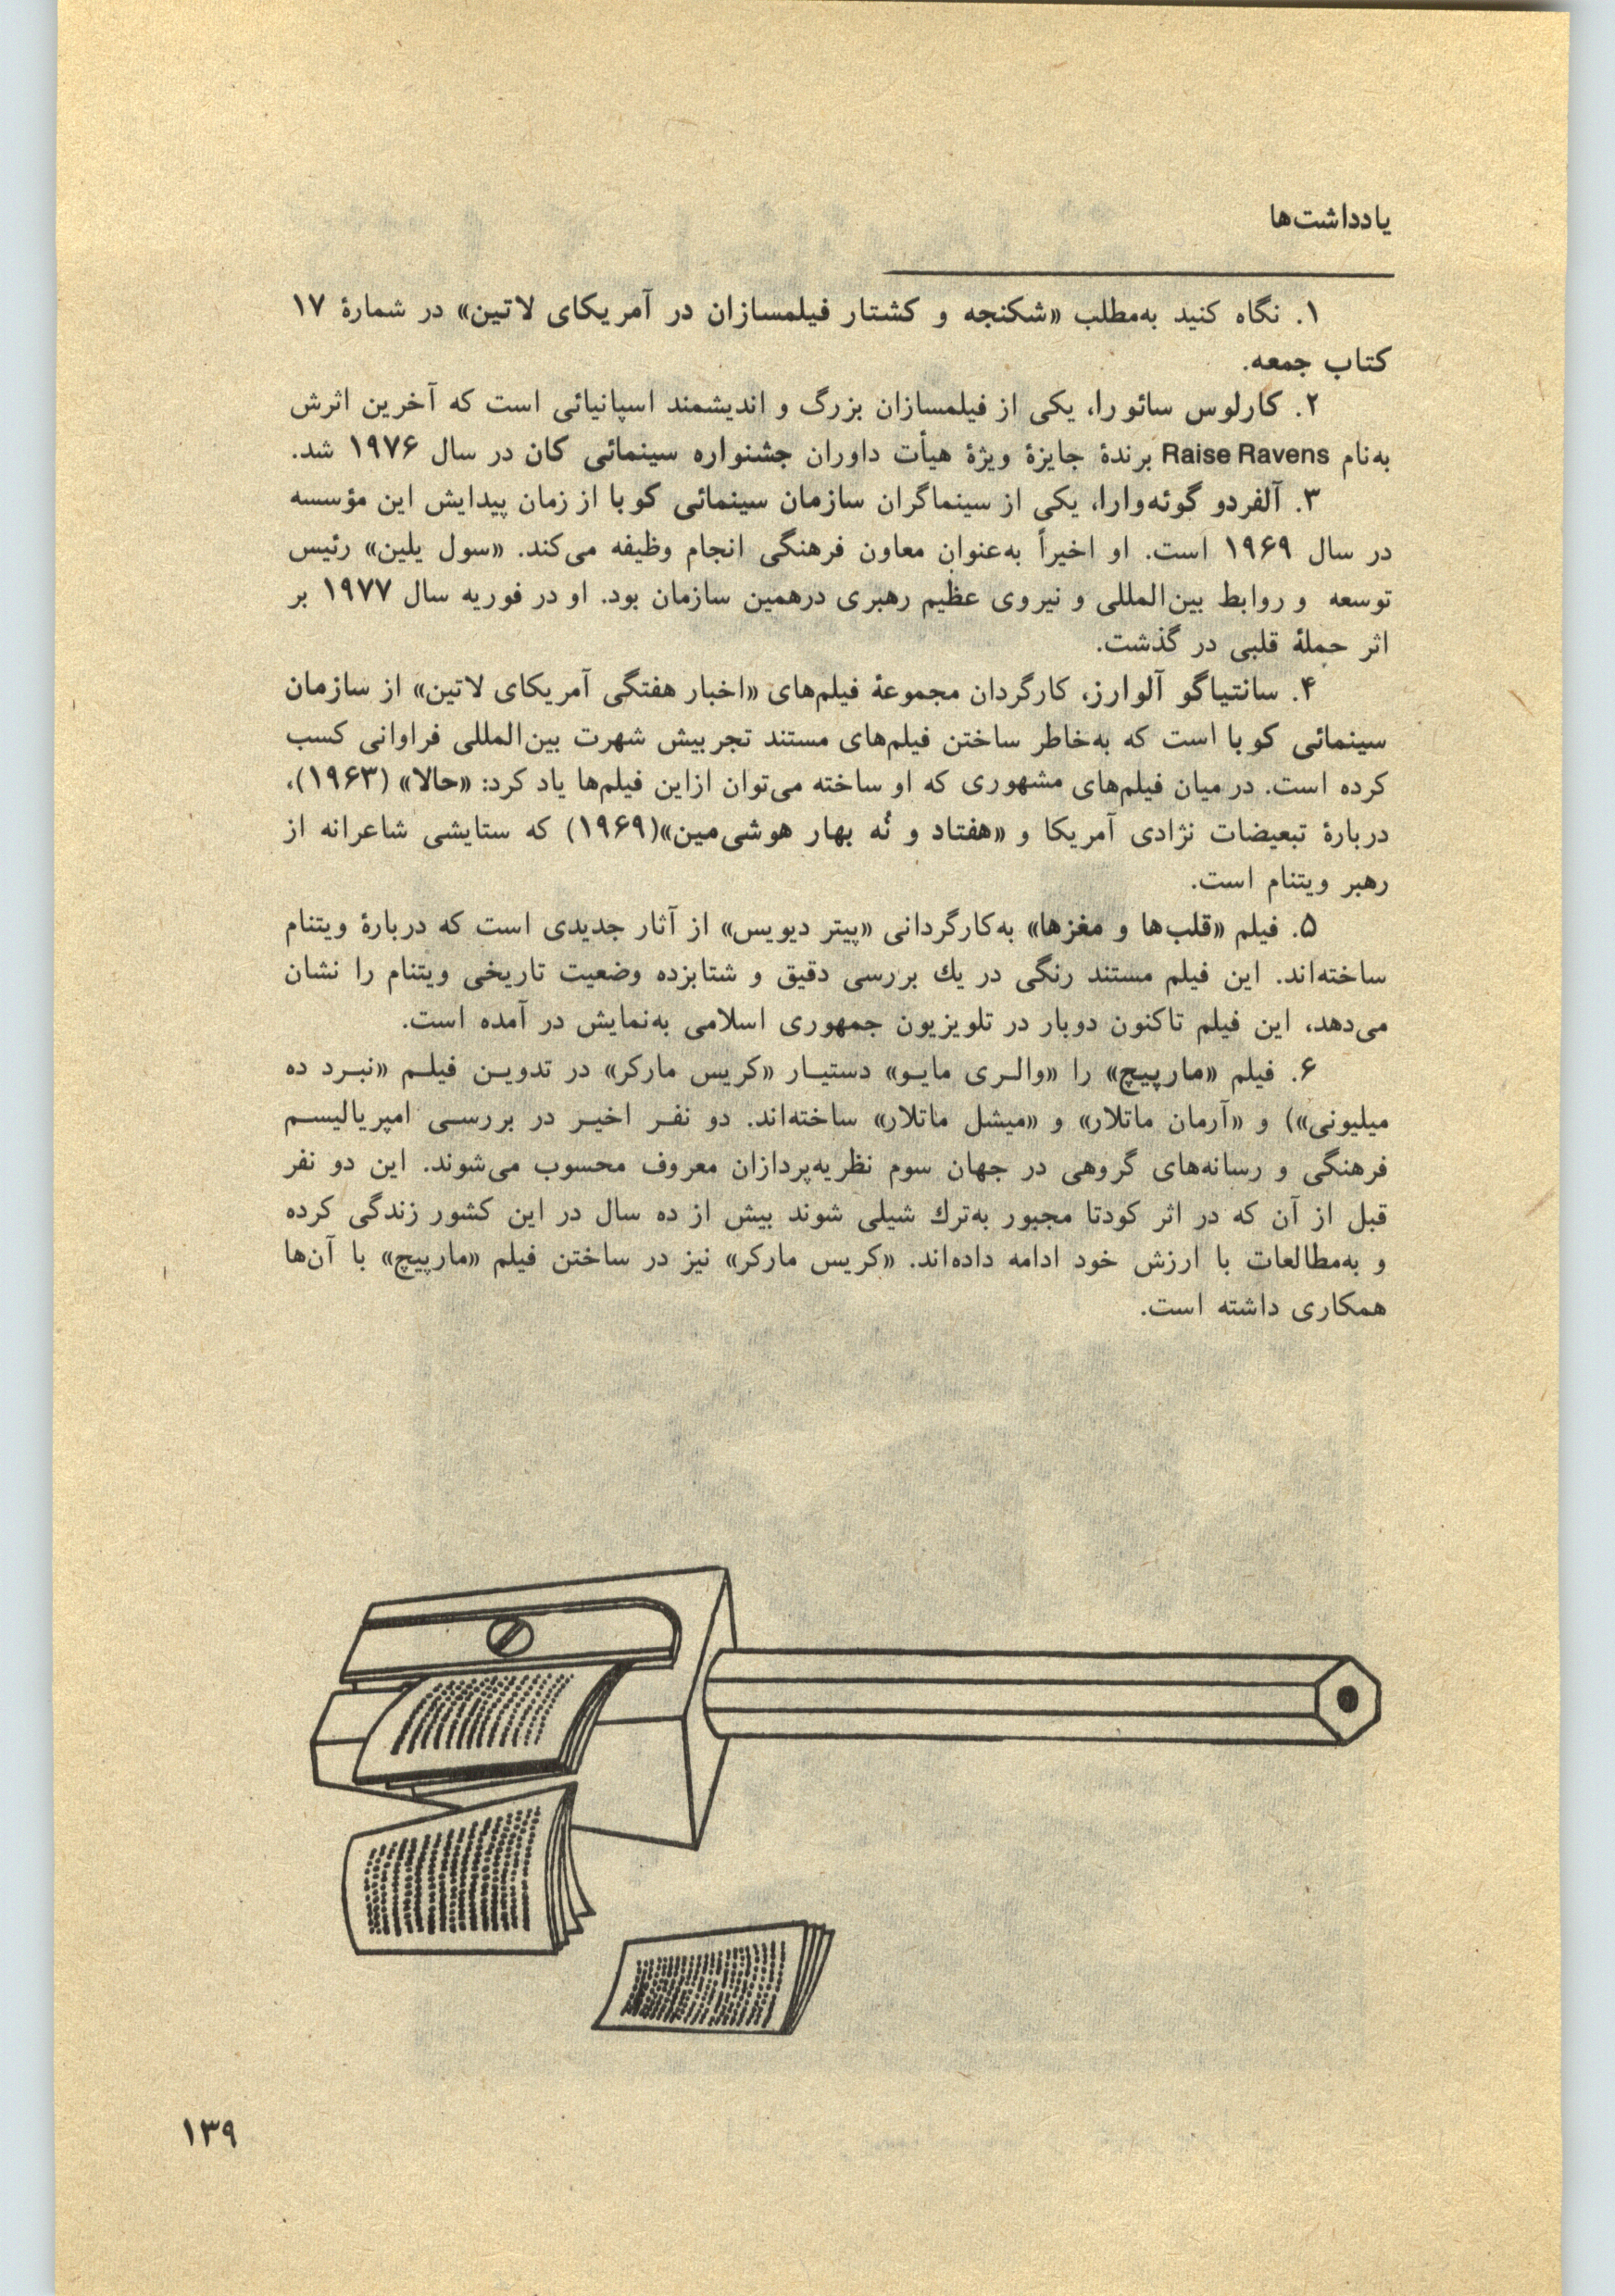 یادداشت‌ها
۱. نگاه کنید به‌مطلب «شکنجه و کشتار فیلمسازان در آمریکای لاتین» در شمارهٔ ۱۷
کتاب جمعه.
۲. کارلوس سائورا، یکی از فیلمسازان بزرگ و اندیشمند اسپانیائی است که آخرین اثرش
به‌نام Raise Ravens برندهٔ جایزهٔ ویژهٔ هیأت داوران جشنواره سینمائی کان در سال ۱۹۷۶ شد.
۳. آلفردو گوئه‌وارا، یکی از سینماگران سازمان سینمائی کوبا از زمان پیدایش این مؤسسه
در سال ۱۹۶۹ است. او اخیراً به‌عنوان معاون فرهنگی انجام وظیفه می‌کند. «سول یلین» رئیس
توسعه و روابط بین‌المللی و نیروی عظیم رهبری درهمین سازمان بود. او در فوریه سال ۱۹۷۷ بر
اثر حملهٔ قلبی در گذشت.
۴. سانتیاگو آلوارز، کارگردان مجموعهٔ فیلم‌های «اخبار هفتگی آمریکای لاتین» از سازمان
سینمائی کوبا است که به‌خاطر ساختن فیلم‌های مستند تجربیش شهرت بین‌المللی فراوانی کسب
کرده است. در میان فیلم‌های مشهوری که او ساخته می‌توان ازاین فیلم‌ها یاد کرد: «حالا» (۱۹۶۳)،
دربارهٔ تبعیضات نژادی آمریکا و «هفتاد و نُه بهار هوشی‌مین»(۱۹۶۹) که ستایشی شاعرانه از
رهبر ویتنام است.
۵. فیلم «قلب‌ها و مغزها» به‌کارگردانی «پیتر دیویس» از آثار جدیدی است که دربارهٔ ویتنام
ساخته‌اند. این فیلم مستند رنگی در یك بررسی دقیق و شتابزده وضعیت تاریخی ویتنام را نشان
می‌دهد، این فیلم تاکنون دوبار در تلویزیون جمهوری اسلامی به‌نمایش در آمده است.
۶. فیلم «مارپیچ» را «والـری مایـو» دستیـار «کریس مارکر» در تدویـن فیلـم «نبـرد ده
میلیونی») و «آرمان ماتلار» و «میشل ماتلار» ساخته‌اند. دو نفـر اخیـر در بررسـی امپریالیسـم
فرهنگی و رسانه‌های گروهی در جهان سوم نظریه‌پردازان معروف محسوب می‌شوند. این دو نفر
قبل از آن که در اثر کودتا مجبور به‌ترك شیلی شوند بیش از ده سال در این کشور زندگی کرده
و به‌مطالعات با ارزش خود ادامه داده‌اند. «کریس مارکر» نیز در ساختن فیلم «مارپیچ» با آن‌ها
همکاری داشته است.
۱۳۹